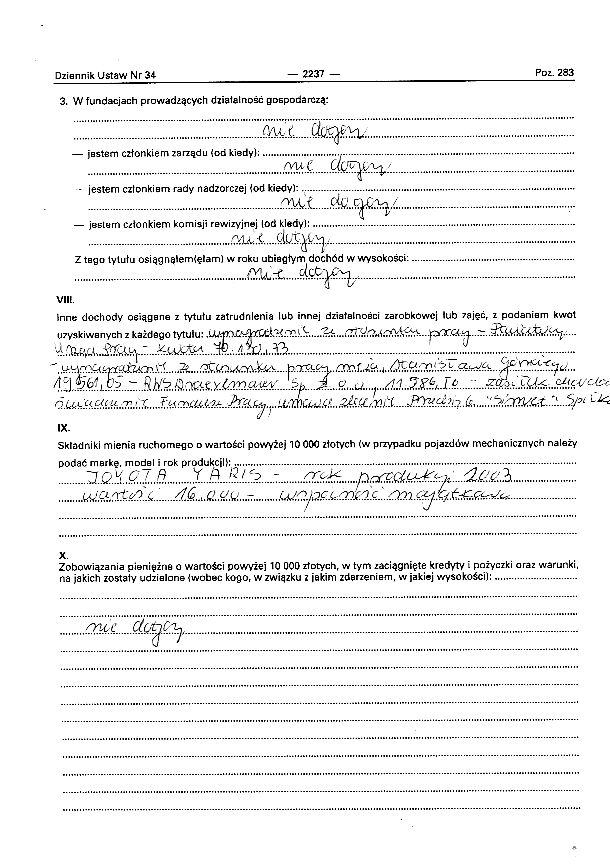 Dziennik Ustaw Nr 34 — 2237 — Poz. 283
3. W fundacjach prowadzących działalność gospodarczą:
nie dotyczy
— jestem członkiem zarządu (od kiedy):
nie dotyczy
— jestem członkiem rady nadzorczej (od kiedy):
nie dotyczy
— jestem członkiem komisji rewizyjnej (od kiedy):
nie dotyczy
Z tego tytułu osiągnąłem(ęłam) w roku ubiegłym dochód w wysokości:
nie dotyczy
VIII.
Inne dochody osiągane z tytułu zatrudnienia lub innej działalności zarobkowej lub zajęć, z podaniem kwot
uzyskiwanych z każdego tytułu: wynagrodzenie ze stosunku pracy –
Urząd Pracy – kwota 70.190,73
- wynagrodzenie z stosunku pracy męża Stanisława
19 561,05 – Sp. z o.o., 11.986,70 – zasiłek
świadczenie Fundusz Pracy, umowa zlecenie "Simet" Spółka
IX.
Składniki mienia ruchomego o wartości powyżej 10 000 złotych (w przypadku pojazdów mechanicznych należy
podać markę, model i rok produkcji):
TOYOTA YARIS – rok produkcji 2003
wartość 16.000 – wspólność majątkowa
X.
Zobowiązania pieniężne o wartości powyżej 10 000 złotych, w tym zaciągnięte kredyty i pożyczki oraz warunki,
na jakich zostały udzielone (wobec kogo, w związku z jakim zdarzeniem, w jakiej wysokości):
nie dotyczy